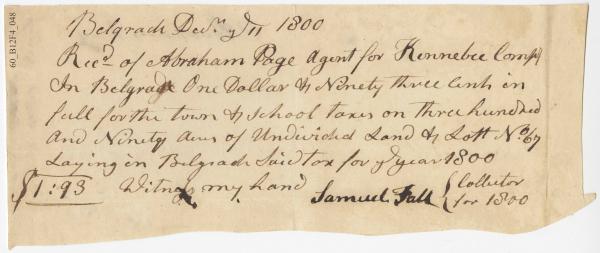 60_B12F4_048
Belgrade Decr. ye 11 1800
Recd. of Abraham Page Agent for Kennebec Compy
In Belgrade One Dollar & Ninety three Cents in
full for the town & School taxes on three hundred
And Ninety acres of Undivided Land & Lott No. 67
Laying in Belgrade Said tax for ye year 1800
$1:93 Witness my hand Samuel Fall { Collector
for 1800